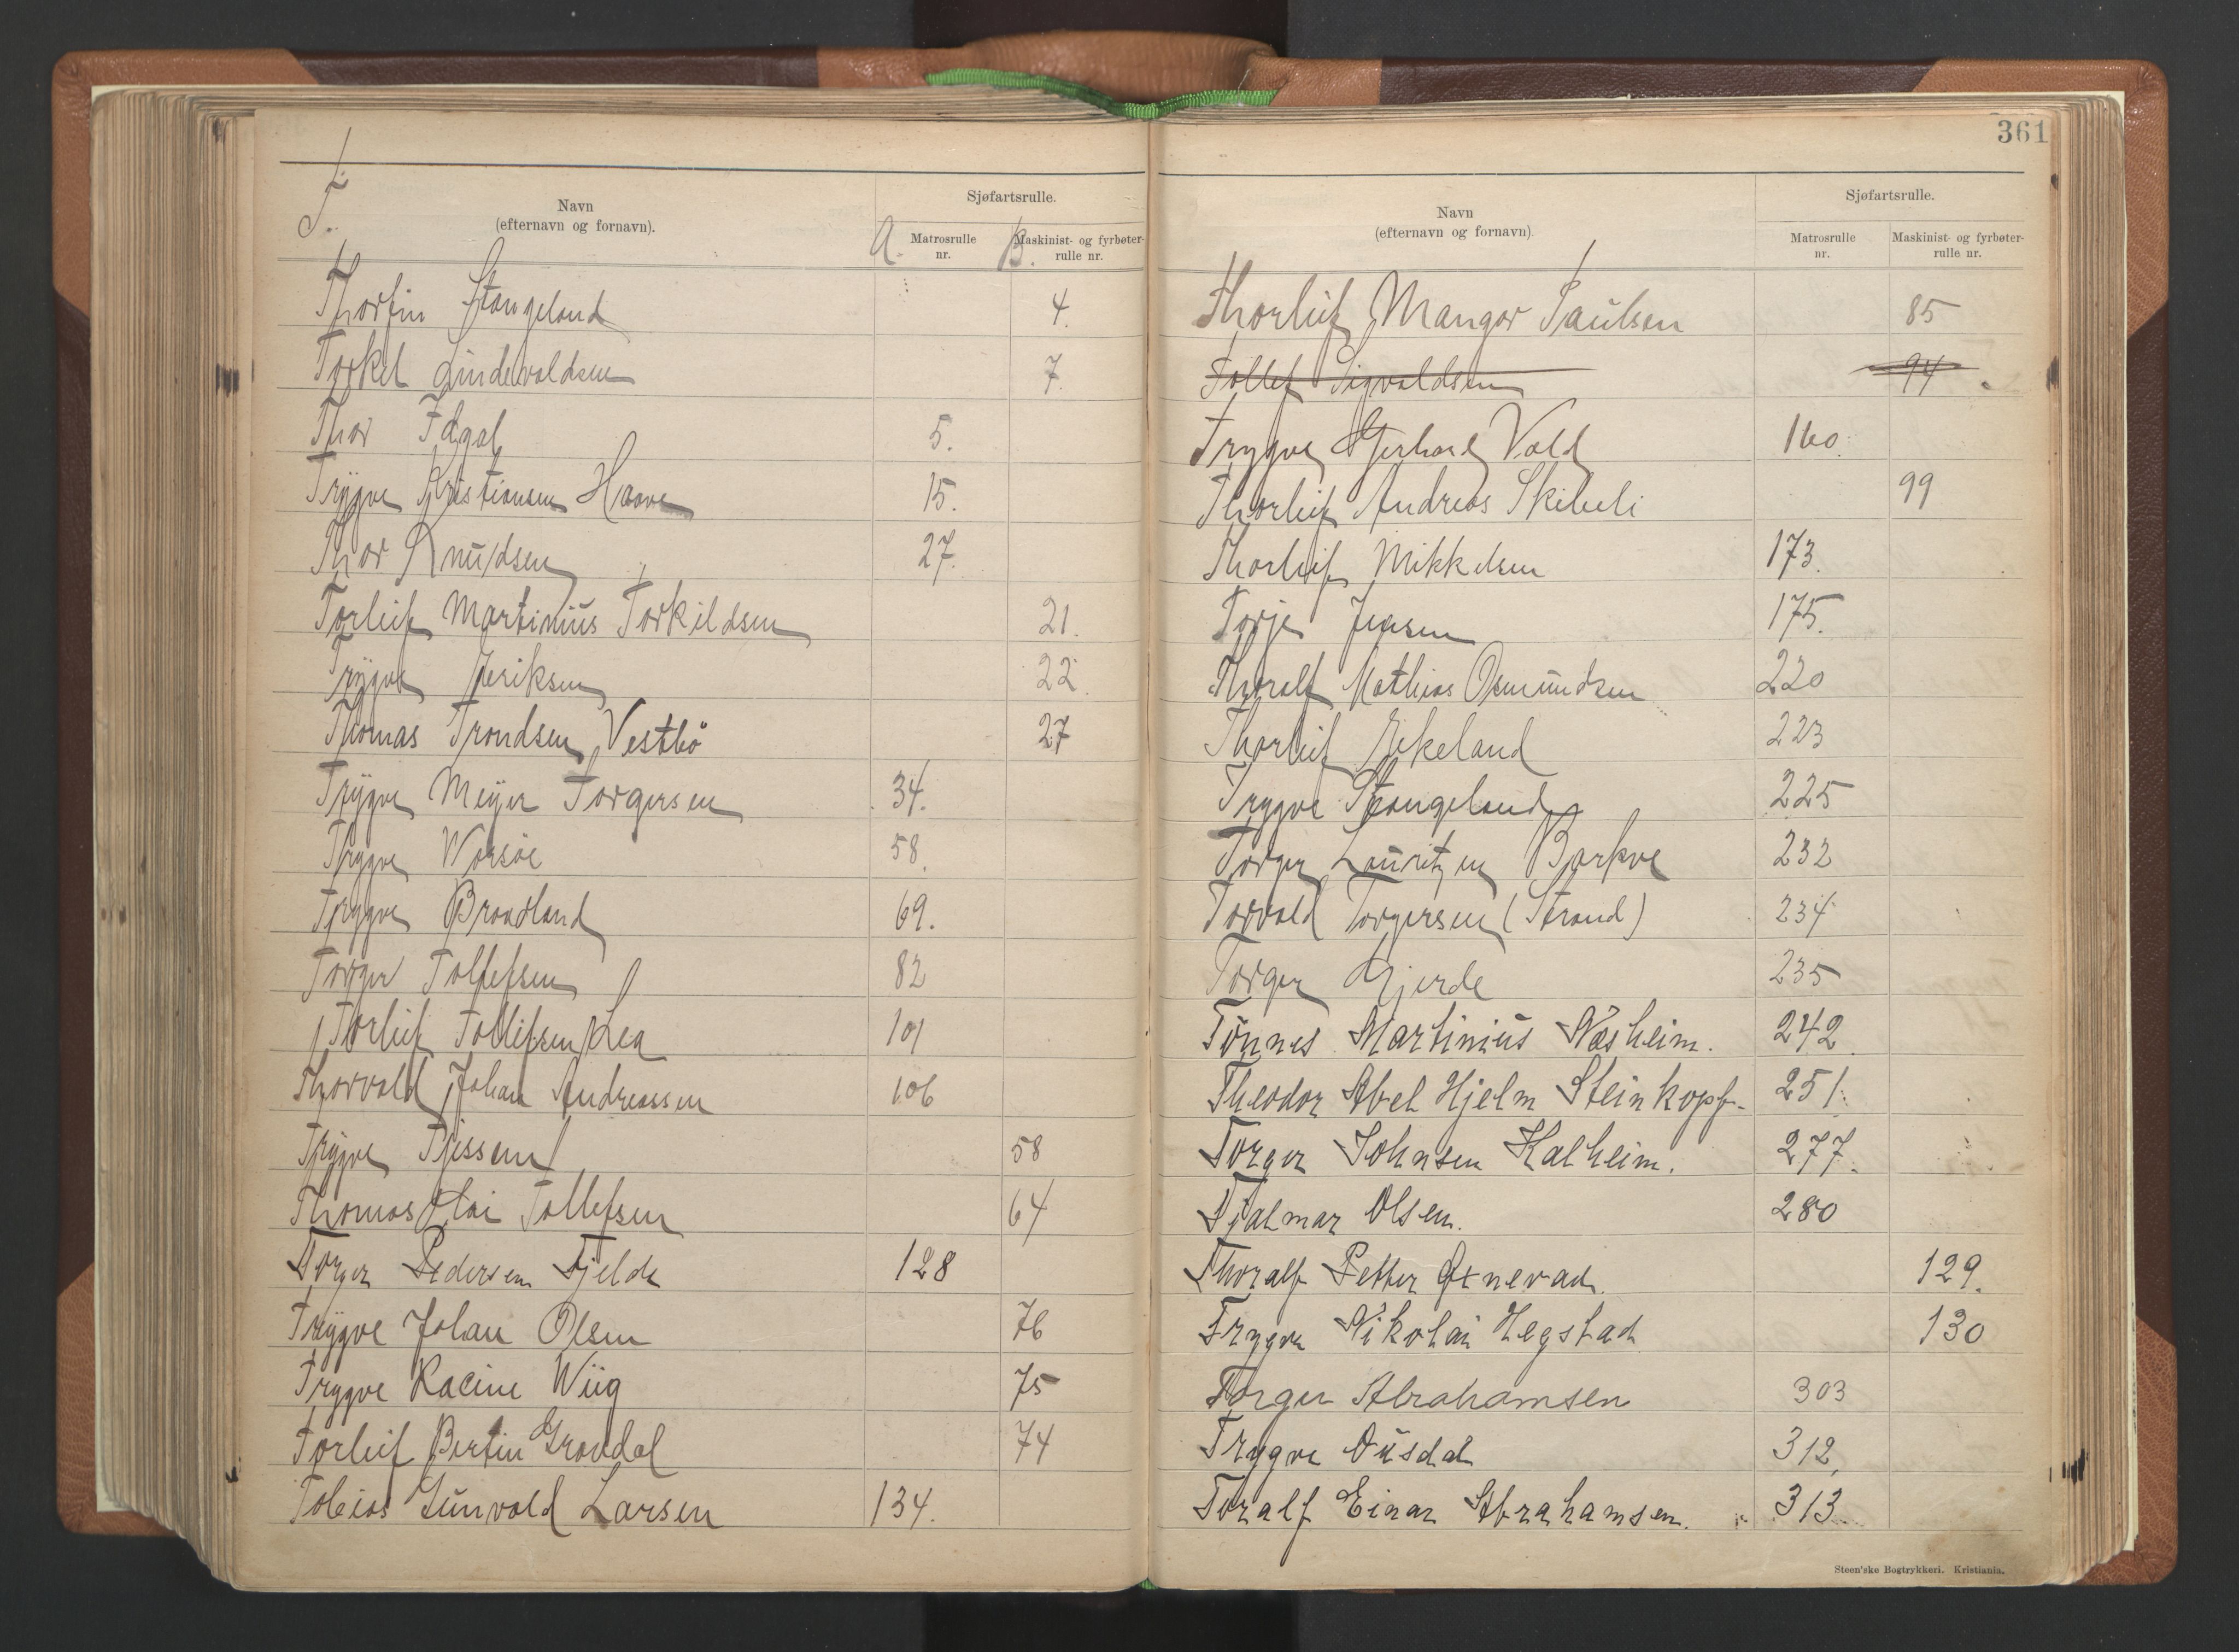 T.
Navn
(efternavn og fornavn).
Sjøfartsrulle.
A. Matrosrulle
nr.
B. Maskinist- og fyrbøter-
rulle nr.
Thorfin Stangeland 4.
Torkel 7.
Thor 5.
Trygve Kristiansen Haave 15.
Thor Knudsen 27.
Torleif Martinius Torkildsen 21.
Trygve Jeriksen 22.
Thomas Trondsen Vestbö 27
Trygve Meyer Torgersen 34.
Trygve Worsöe 58.
Trygve Broadland 69.
Torger Tollefsen 82
Torleif Tollefsen Lea 101
Thorvald Johan Andreassen 106
Trygve Tjessem 58
Thomas Tollefsen 64
Torger Pedersen Fjelde 128
Trygve Johan Olsen 76
Trygve Racine Wiig 75
Torleif Bertin Grövdal 74
Tobias Gunvald Larsen 134.
361
Navn
(efternavn og fornavn).
Sjøfartsrulle.
Matrosrulle
nr.
Maskinist- og fyrbøter-
rulle nr.
Thorleif Mangor Paulsen 85
Tollef Sigvaldsen 94
Trygve Gerhard Vold 160.
Thorleif Andreas Skibeli 99
Thorleif Mikkelsen 173.
Torje Jensen 175.
Thoralf Mathias Osmundsen 220
Thorleif Jekeland 223
Trygve Stangeland 225
Torger Lauritzen Barkve 232
Torvald Torgersen (Strand) 234
Torger Gjerde 235
Tönnes Martinius Næsheim. 242.
Theodor Abel Hjelm Steinkopf. 251.
Torger Johnsen Kalheim. 277.
Tjalmar Olsen. 280
Thoralf Petter Oxnevad. 129.
Trygve Nikolai Hegstad 130
Torger Abrahamsen 303
Trygve Ousdal 312.
Toralf Einar Abrahamsen. 313.
Steen'ske Bogtrykkeri. Kristiania.